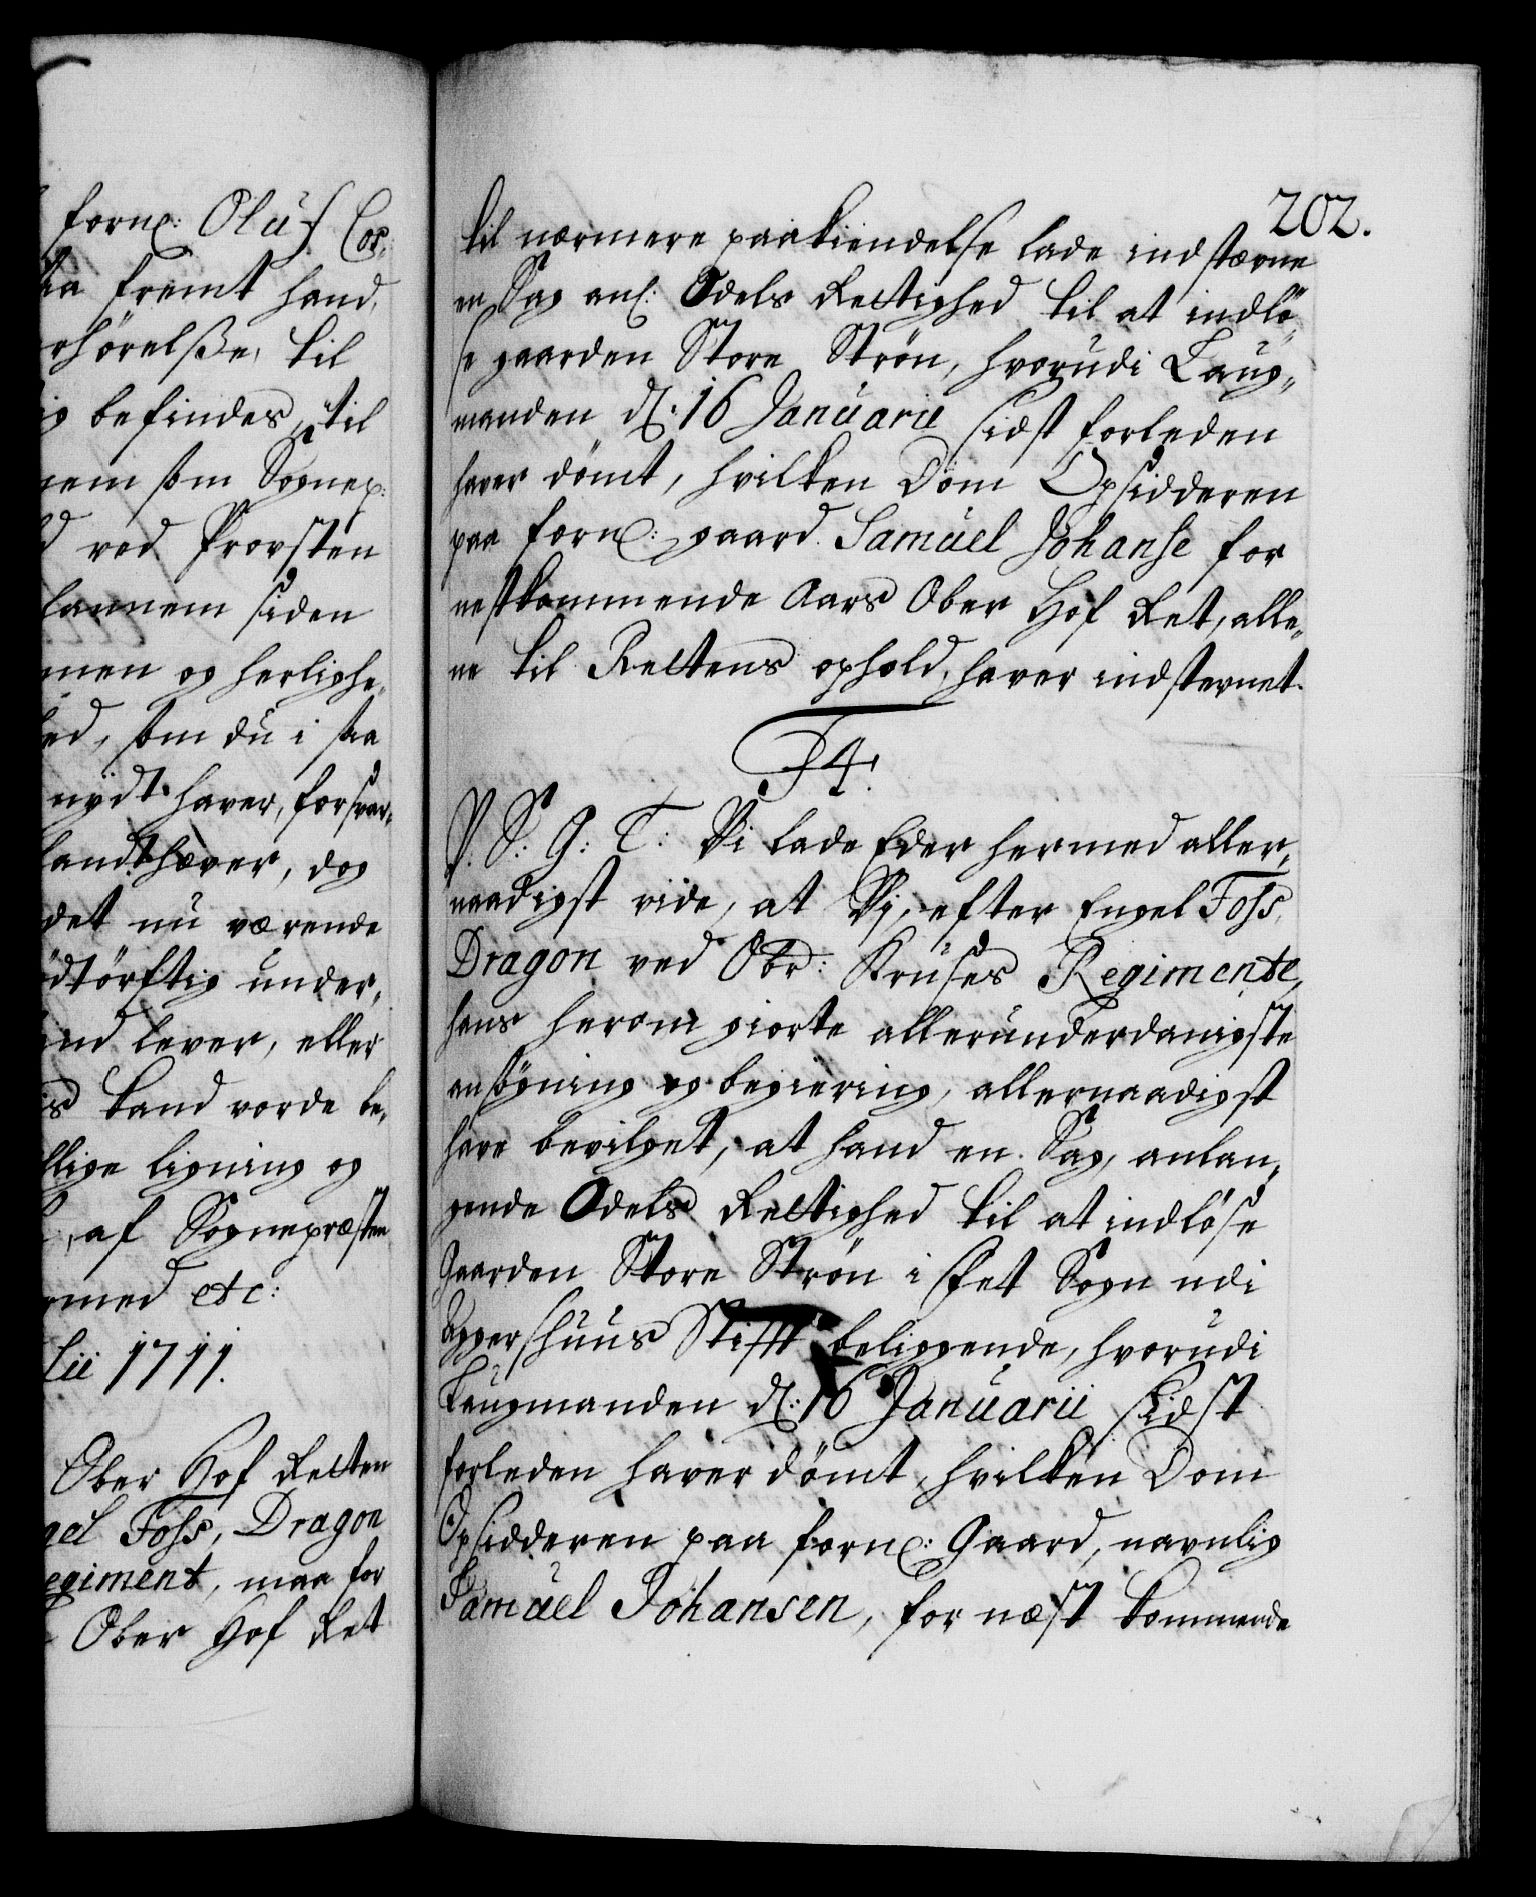 fornᵉ: Oluf Cor:
aa fremt hand,
rhörelße, til
ig befindes, til
nem som Sognep:
d ved Provsten
lannem siden
men og herlighe„
ed, som du i saa
nÿdt haver, forsvar„
landt hæver, dog
det nu værende
ödtörftig under„
ind lever, eller
s kand vorde be„
llige ligning og
, af Sognepræsten
med etc:
lii 1711.
Ober Hof Retten
gel Foss, Dragon
egiment, maa for
Ober Hof Ret
202.
til nærmere paakiendelse lade indstævne
en Sag anl: Odels Rettighed til at indlö„
se gaarden Store Strøn, hvorudi Laug„
manden d: 16 Januarii sidst forleden
haver dömt, hvilken Dom Opsidderen
paa fornᵉ: gaard Samuel Johanse for
nestkommende Aars Ober Hof Ret, alle„
ne til Rettens ophold, haver indstevnet.
74.
P. S: G: T: Vi lade Eder hermed aller„
naadigst vide, at Vj, efter Engel Foss,
Dragon ved Obr: Kruses Regimente,
hans herom giorte allerunderdanigste
ansögning og begiering, allernaadigst
have bevilget, at hand en Sag, anlan„
gende Odels Rettighed til at indlöse
Gaarden Store Strøn i Fet Sogn udi
Aggershuus Stifft beliggende, hvorudi
Laugmanden d: 16 Januarii sidst
forleden haver dömt, hvilken Dom
Opsidderen paa fornᵉ: Gaard, navnlig
Samuel Johansen, for næst kommende